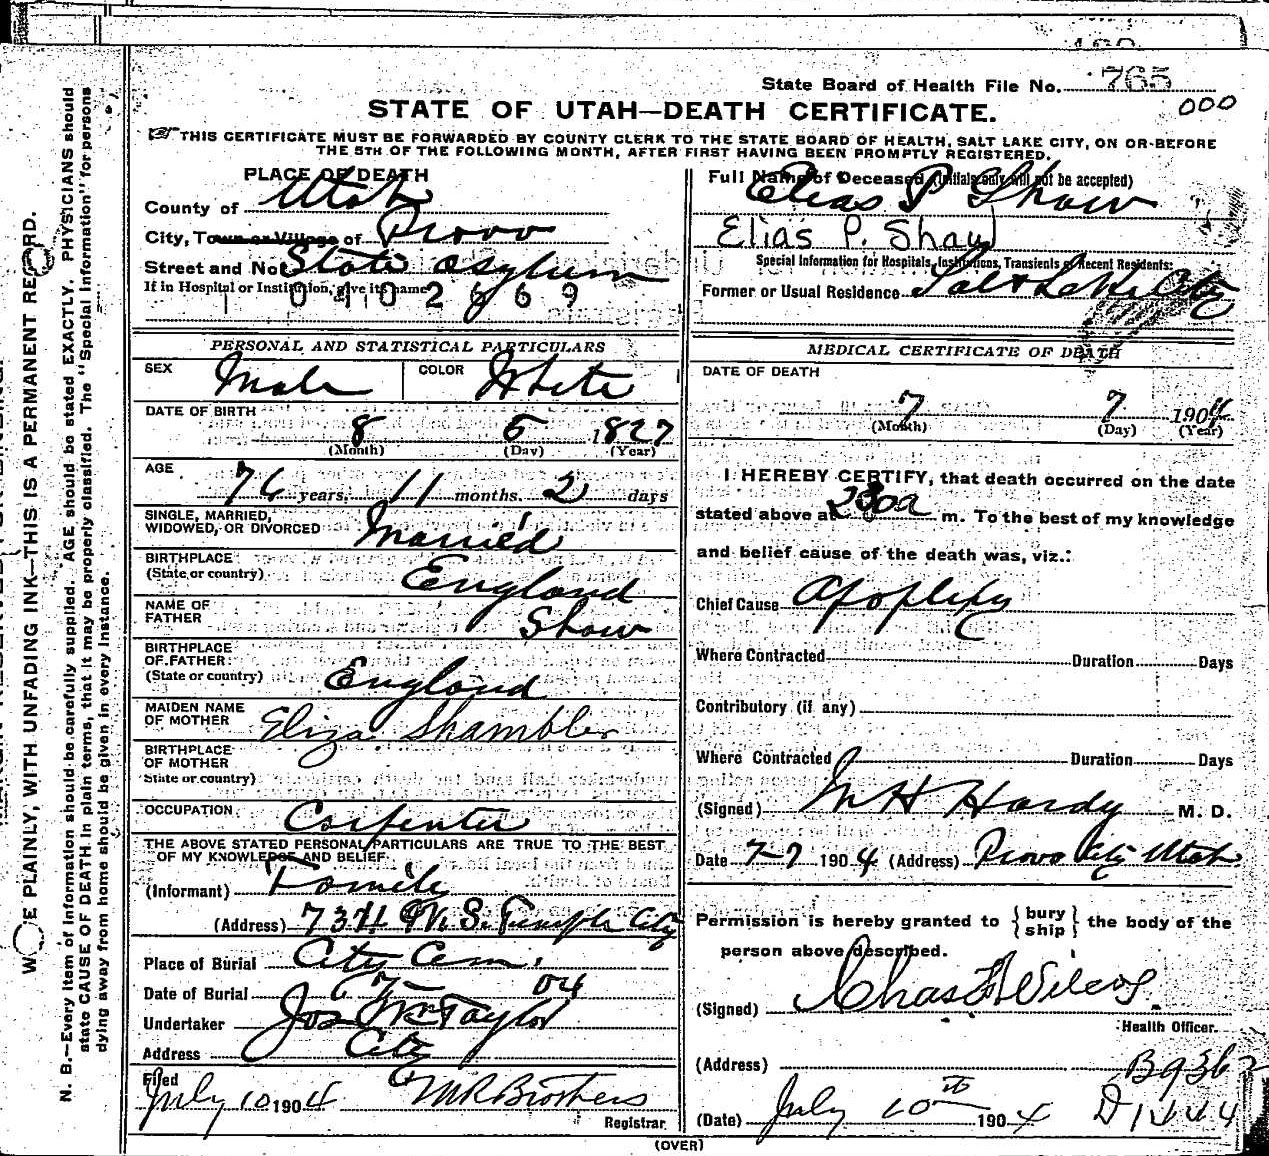 State Board of Health File No. 765
000
STATE OF UTAH—DEATH CERTIFICATE.
THIS CERTIFICATE MUST BE FORWARDED BY COUNTY CLERK TO THE STATE BOARD OF HEALTH, SALT LAKE CITY, ON OR BEFORE
THE 5TH OF THE FOLLOWING MONTH, AFTER FIRST HAVING BEEN PROMPTLY REGISTERED.
PLACE OF DEATH
County of Utah
City, Town or Village of Provo
Street and No. State asylum
If in Hospital or Institution, give its name
PERSONAL AND STATISTICAL PARTICULARS
SEX Male COLOR White
DATE OF BIRTH
8 5 1827
(Month) (Day) (Year)
AGE
76 years, 11 months, 2 days
SINGLE, MARRIED,
WIDOWED, OR DIVORCED Married
BIRTHPLACE
(State or country) England
NAME OF
FATHER Shaw
BIRTHPLACE
OF FATHER
(State or country) England
MAIDEN NAME
OF MOTHER Eliza Shambler
BIRTHPLACE
OF MOTHER
State or country)
OCCUPATION Carpenter
THE ABOVE STATED PERSONAL PARTICULARS ARE TRUE TO THE BEST
OF MY KNOWLEDGE AND BELIEF
(Informant) Family
(Address) 734 W. S. Temple City
Place of Burial City Cem.
Date of Burial 04
Undertaker Jos Wm Taylor
Address City
Filed
July 10 1904 M R Brothers
Registrar.
Full Name of Deceased (Initials only will not be accepted)
Elias P Shaw
Elias P. Shaw
Special Information for Hospitals, Institutions, Transients or Recent Residents:
Former or Usual Residence Salt Lake City
MEDICAL CERTIFICATE OF DEATH
DATE OF DEATH
7 7 1904
(Month) (Day) (Year)
I HEREBY CERTIFY, that death occurred on the date
stated above at 230a m. To the best of my knowledge
and belief cause of the death was, viz.:
Chief Cause Apoplexy
Where Contracted Duration Days
Contributory (if any)
Where Contracted Duration Days
(Signed) M H Hardy M. D.
Date 7-7 1904 (Address) Provo City Utah
Permission is hereby granted to {bury ship} the body of the
person above described.
(Signed) Chas F Wilcox.
Health Officer.
(Address)
(Date) July 10th 1904
N. B.—Every item of information should be carefully supplied. AGE should be stated EXACTLY. PHYSICIANS should
state CAUSE OF DEATH in plain terms, that it may be properly classified. The "Special Information" for persons
dying away from home should be given in every instance.
PLAINLY, WITH UNFADING INK—THIS IS A PERMANENT RECORD.